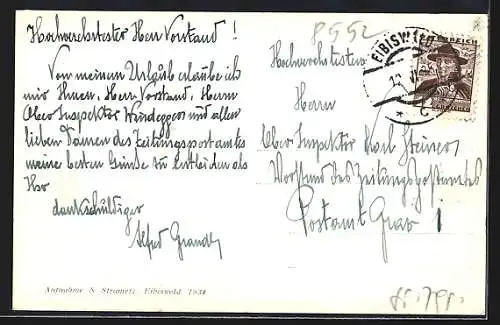 Hochverehrtester Herr Vorstand !
Von meinem Urlaub erlaube ich
mir Ihnen, Herr Vorstand, Herrn
Ober Inspektor Windegger und allen
lieben Damen des Zeitungspostamtes
meine besten Grüße zu entbieten als
Ihr
dankschuldiger
Alfred
Aufnahme S. Strametz, Eibiswald 1934
P552
Hochverehrtesten
Herrn
Ober Inspektor Karl Steiner
Vorstand des Zeitungspostamtes
Postamt Graz 1
EIBISWALD
ÖSTERREICH